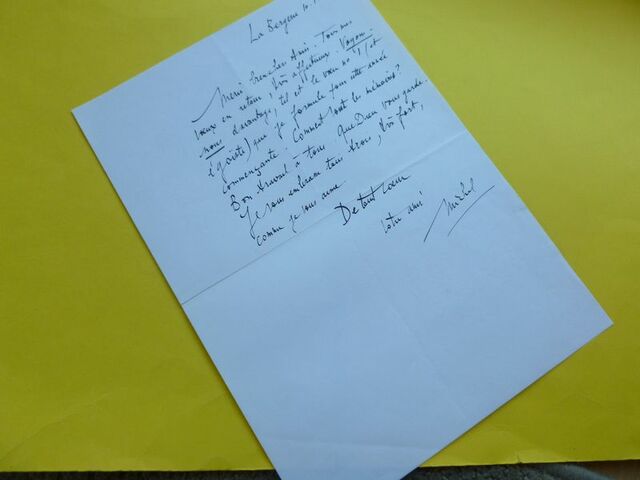 La Bergerie 10.1
Merci bien cher Ami. Tous nos
voeux en retour, très affectueux. Voyons-
nous davantage, tel est le voeu no 1 (et
égoïste) que je formule pour cette année
commençante. Comment vont les mémoires?
Bon travail à tous que Dieu vous garde.
Je vous embrasse tous deux, très fort,
comme je vous aime
De tout coeur
votre ami
Michel